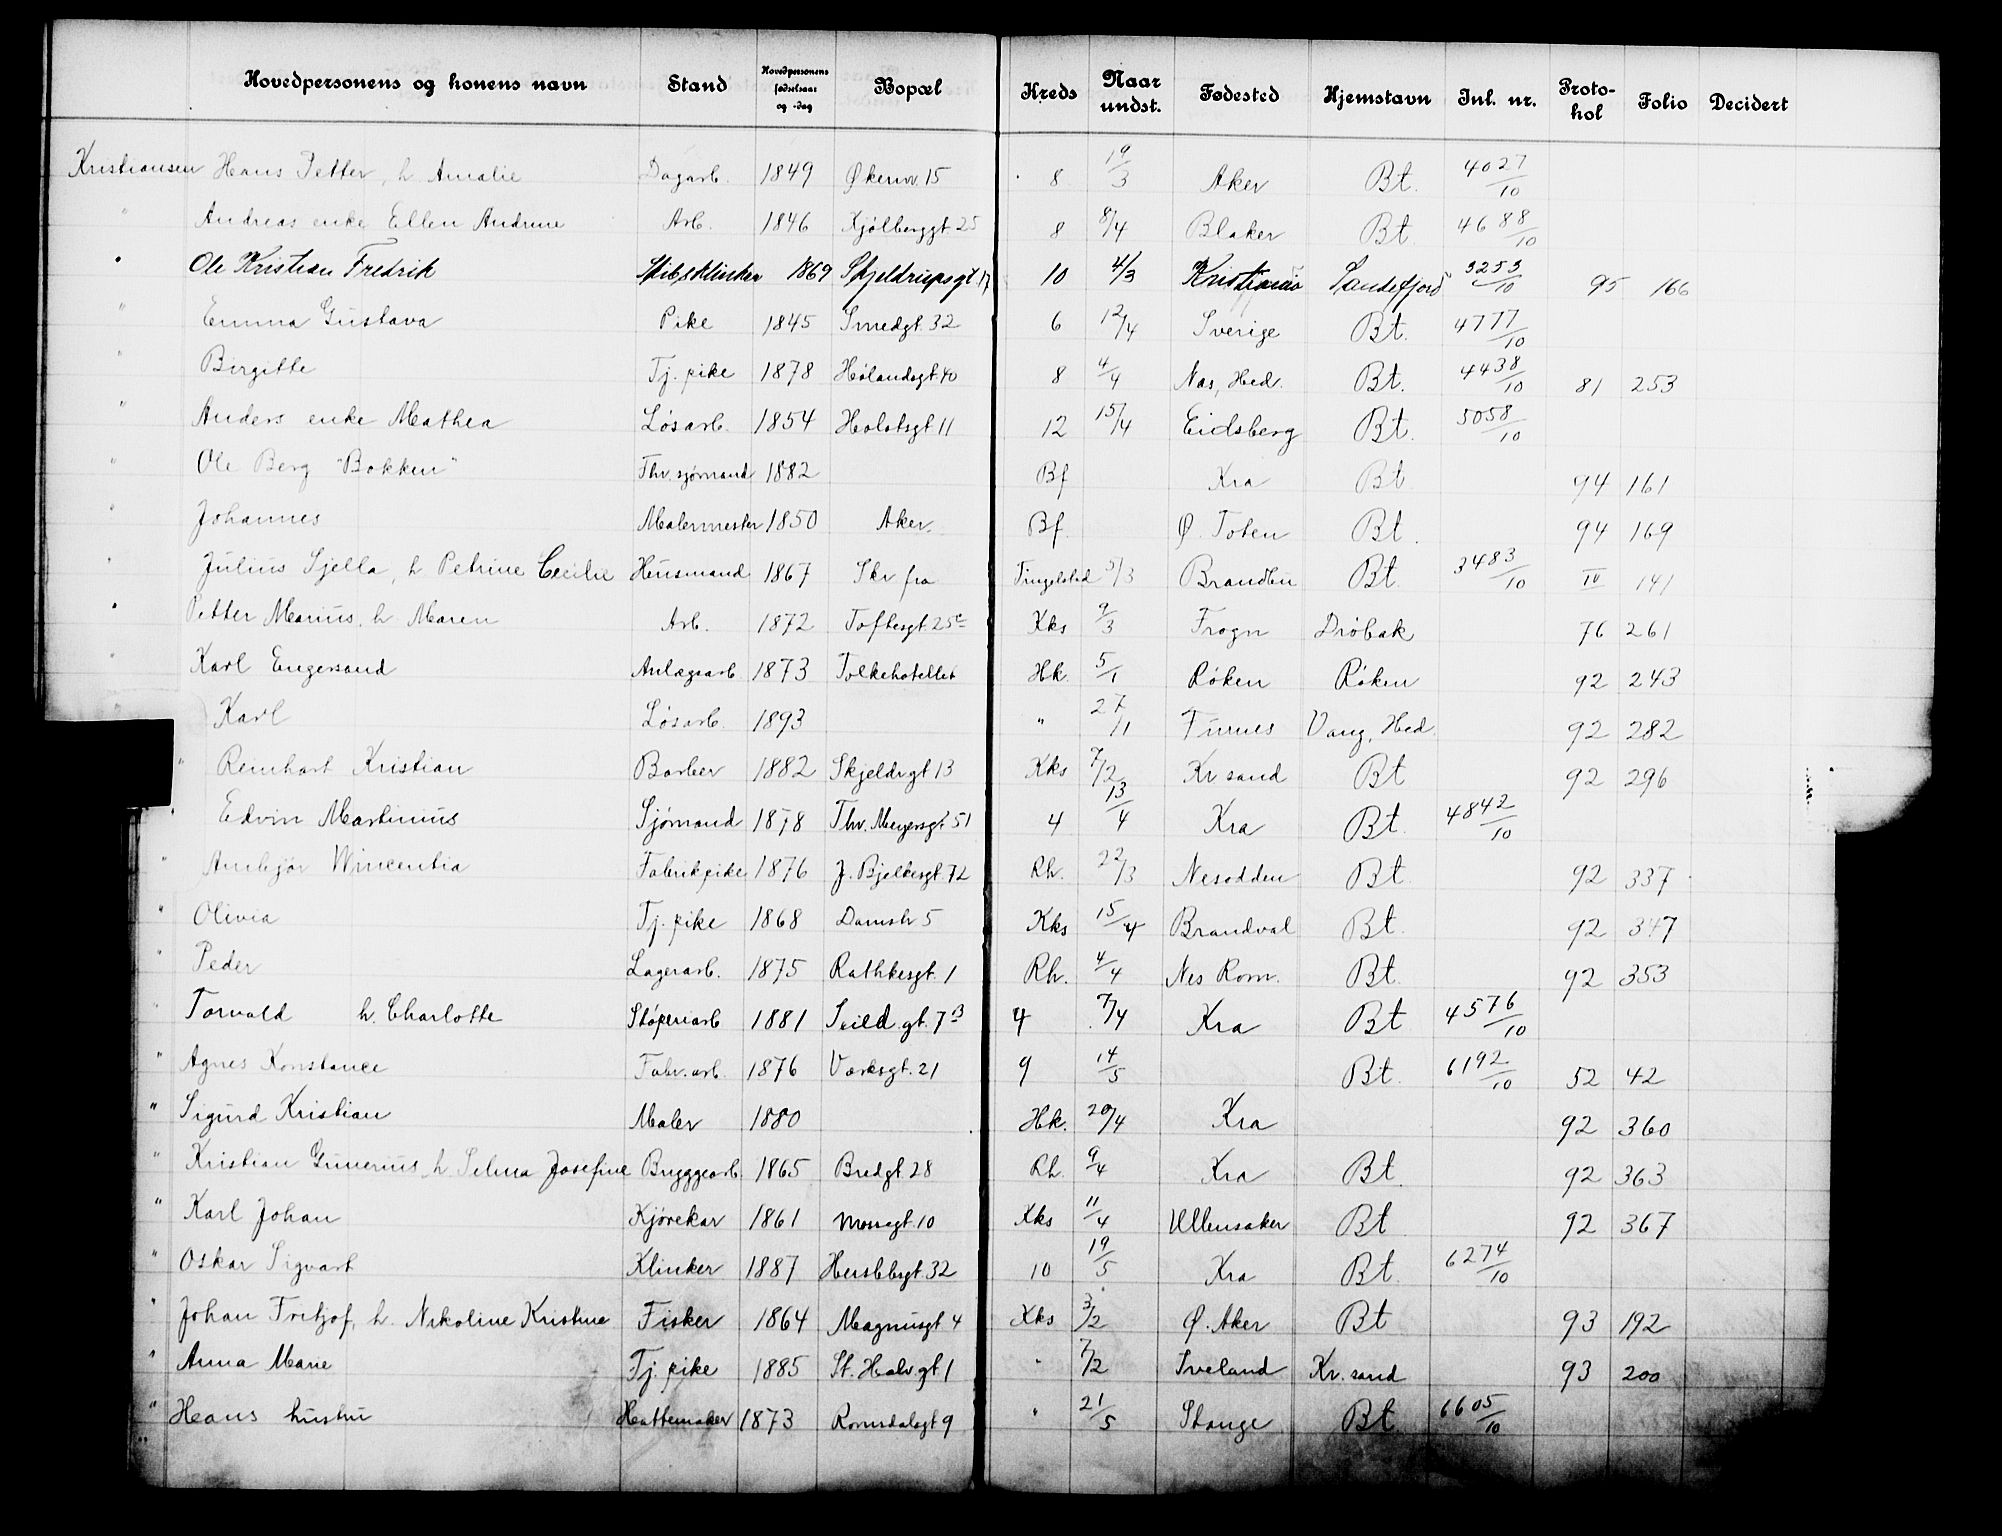 Hovedpersonens og konens navn Stand Hovedpersonens fødselsaar og -dag Bopæl Kreds Naar undst. Fødested Hjemstavn Inl. nr. Protokol Folio Decidert
Kristiansen Hans Petter, h. Amalie Dagarb. 1849 Økernv. 15 8 19/3 Aker Bt. 4027/10
" Andreas enke Ellen Andrine Arb. 1846 Kjølberggt 25 8 8/4 Blaker Bt. 4688/10
" Ole Kristian Fredrik Skibsklinker 1869 Skjeldrupsgt. 17 10 4/3 Kristiania Sandefjord 3253/10 95 166
" Emma Gustava Pike 1845 Smedgt. 32 6 12/4 Sverige Bt. 4777/10
" Birgitte Tj. pike 1878 Hølandsgt. 40 8 4/4 Nes, Hed. Bt. 4438/10 81 253
" Anders enke Mathea Løsarb. 1854 Holstsgt 11 12 15/4 Eidsberg Bt. 5058/10
" Ole Berg "Bokken" Thv. sjømand 1882 Bf Kra Bt 94 161
" Johannes Malermester 1850 Aker. Bf. Ø. Toten Bt. 94 169
" Julius Sjella, h Petrine Cecilie Husmand 1867 Skr fra Tingelstad 5/3 Brandbu Bt. 3483/10 IV 141
" Petter Marius, h. Maren Arb. 1872 Toftesgt. 25c Kks 9/3 Frogn Drøbak 76 261
" Karl Engersand Anlægsarb. 1873 Folkehotellet Hk. 5/1 Røken Røken 92 243
" Karl Løsarb. 1893 " 27/11 Furnes Vang, Hed. 92 282
" Reinhart Kristian Barber 1882 Skjeldrgt 13 Kks 7/2 Kr sand Bt 92 296
" Edvin Martinius Sjømand 1878 Thv. Meyersgt 51 4 13/4 Kra Bt. 4842/10
" Wincentia Fabrikpike 1876 J. Bjelkesgt. 72 Rh. 22/3 Nesodden Bt. 92 337
" Olivia Tj. pike 1868 Damstr 5 Kks 15/4 Brandval Bt. 92 347
" Peder Lagerarb. 1875 Rathkesgt. 1 Rh. 4/4 Nes Rom. Bt. 92 353
" Torvald h. Charlotte Støperiarb 1881 Seild.gt. 7B 4 7/4 Kra Bt 4576/10
" Agnes Konstance Fabr. arb. 1876 Verksgt. 21 9 14/5 Bt. 6192/10 52 42
" Sigurd Kristian Maler 1880 Hk. 20/4 Kra 92 360
" Kristian Gunerius, h. Selma Josefine Bryggearb. 1865 Bredgt. 28 Rh. 9/4 Kra Bt. 92 363
" Karl Johan Kjørekar 1861 Mossegt. 10 Kks 11/4 Ullensaker Bt 92 367
" Oskar Sigvart Klinker 1887 Herslebsgt. 32 10 19/5 Kra Bt. 6274/10
" Johan Fritjof, h. Nikoline Kristine Fisker 1864 Magnusgt 4 Kks 3/2 Ø. Aker Bt 93 192
" Anna Marie Tj. pike 1885 St. Halv.gt. 1 " 7/2 Iveland Kr. sand 93 200
" Hans hustru Hattemaker 1873 Romsdalsgt 9 " 21/5 Stange Bt. 6605/10